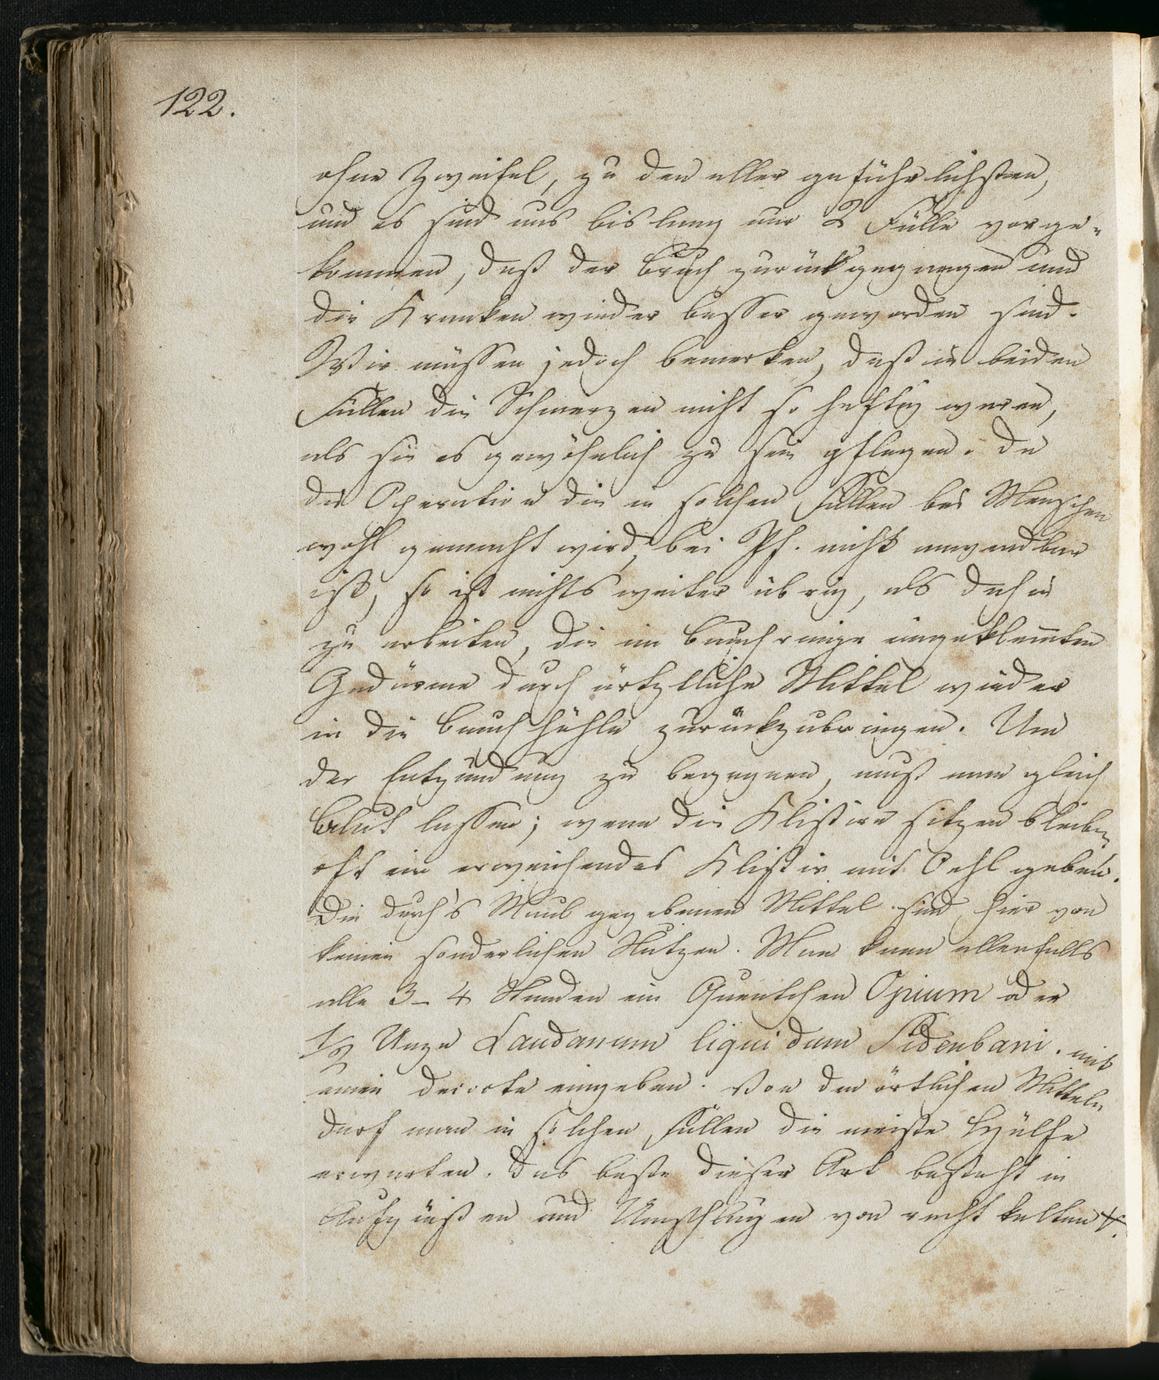 122.
ohne Zweifel, zu den aller gefährlichsten,
und es sind uns bislang nur 2 Fälle vorge-
kommen, daß der Bruch zurückgegangen und
die Kranken wieder besser geworden sind.
Wir müssen jedoch bemerken, daß in beiden
Fällen die Schmerzen nicht so heftig waren,
als sie es gewöhnlich zu sein pflegen. Da
die Operation die in solchen Fällen bei Menschen
wohl gemacht wird, bei Pf. nicht anwendbar
ist, so ist nichts weiter übrig, als dahin
zu arbeiten, die im Bauchringe eingeklemten
Gedärme durch örtzlliche Mittel wieder
in die Bauchhöhle zurückzubringen. Um
der Entzündung zu begegnen, muß man gleich
Blut lassen; wenn die Klistire sitzen bleiben
oft ein erweichendes Klistir mit Oehl geben.
Die durch's Maul gegebenen Mittel sind hier von
keinen sonderlichen Nutzen. Man kann allenfalls
alle 3-4 Stunden ein Quentchen Opium oder
1/2 Unze Laudanum liquidum Sidenbani. mit
einen decocte eingeben. Von den örtlichen Mitteln
darf man in solchen Fällen die meiste Hülfe
erwarten. Das beste dieser Art besteht in
Aufgießen und Umschlägen von recht kalten